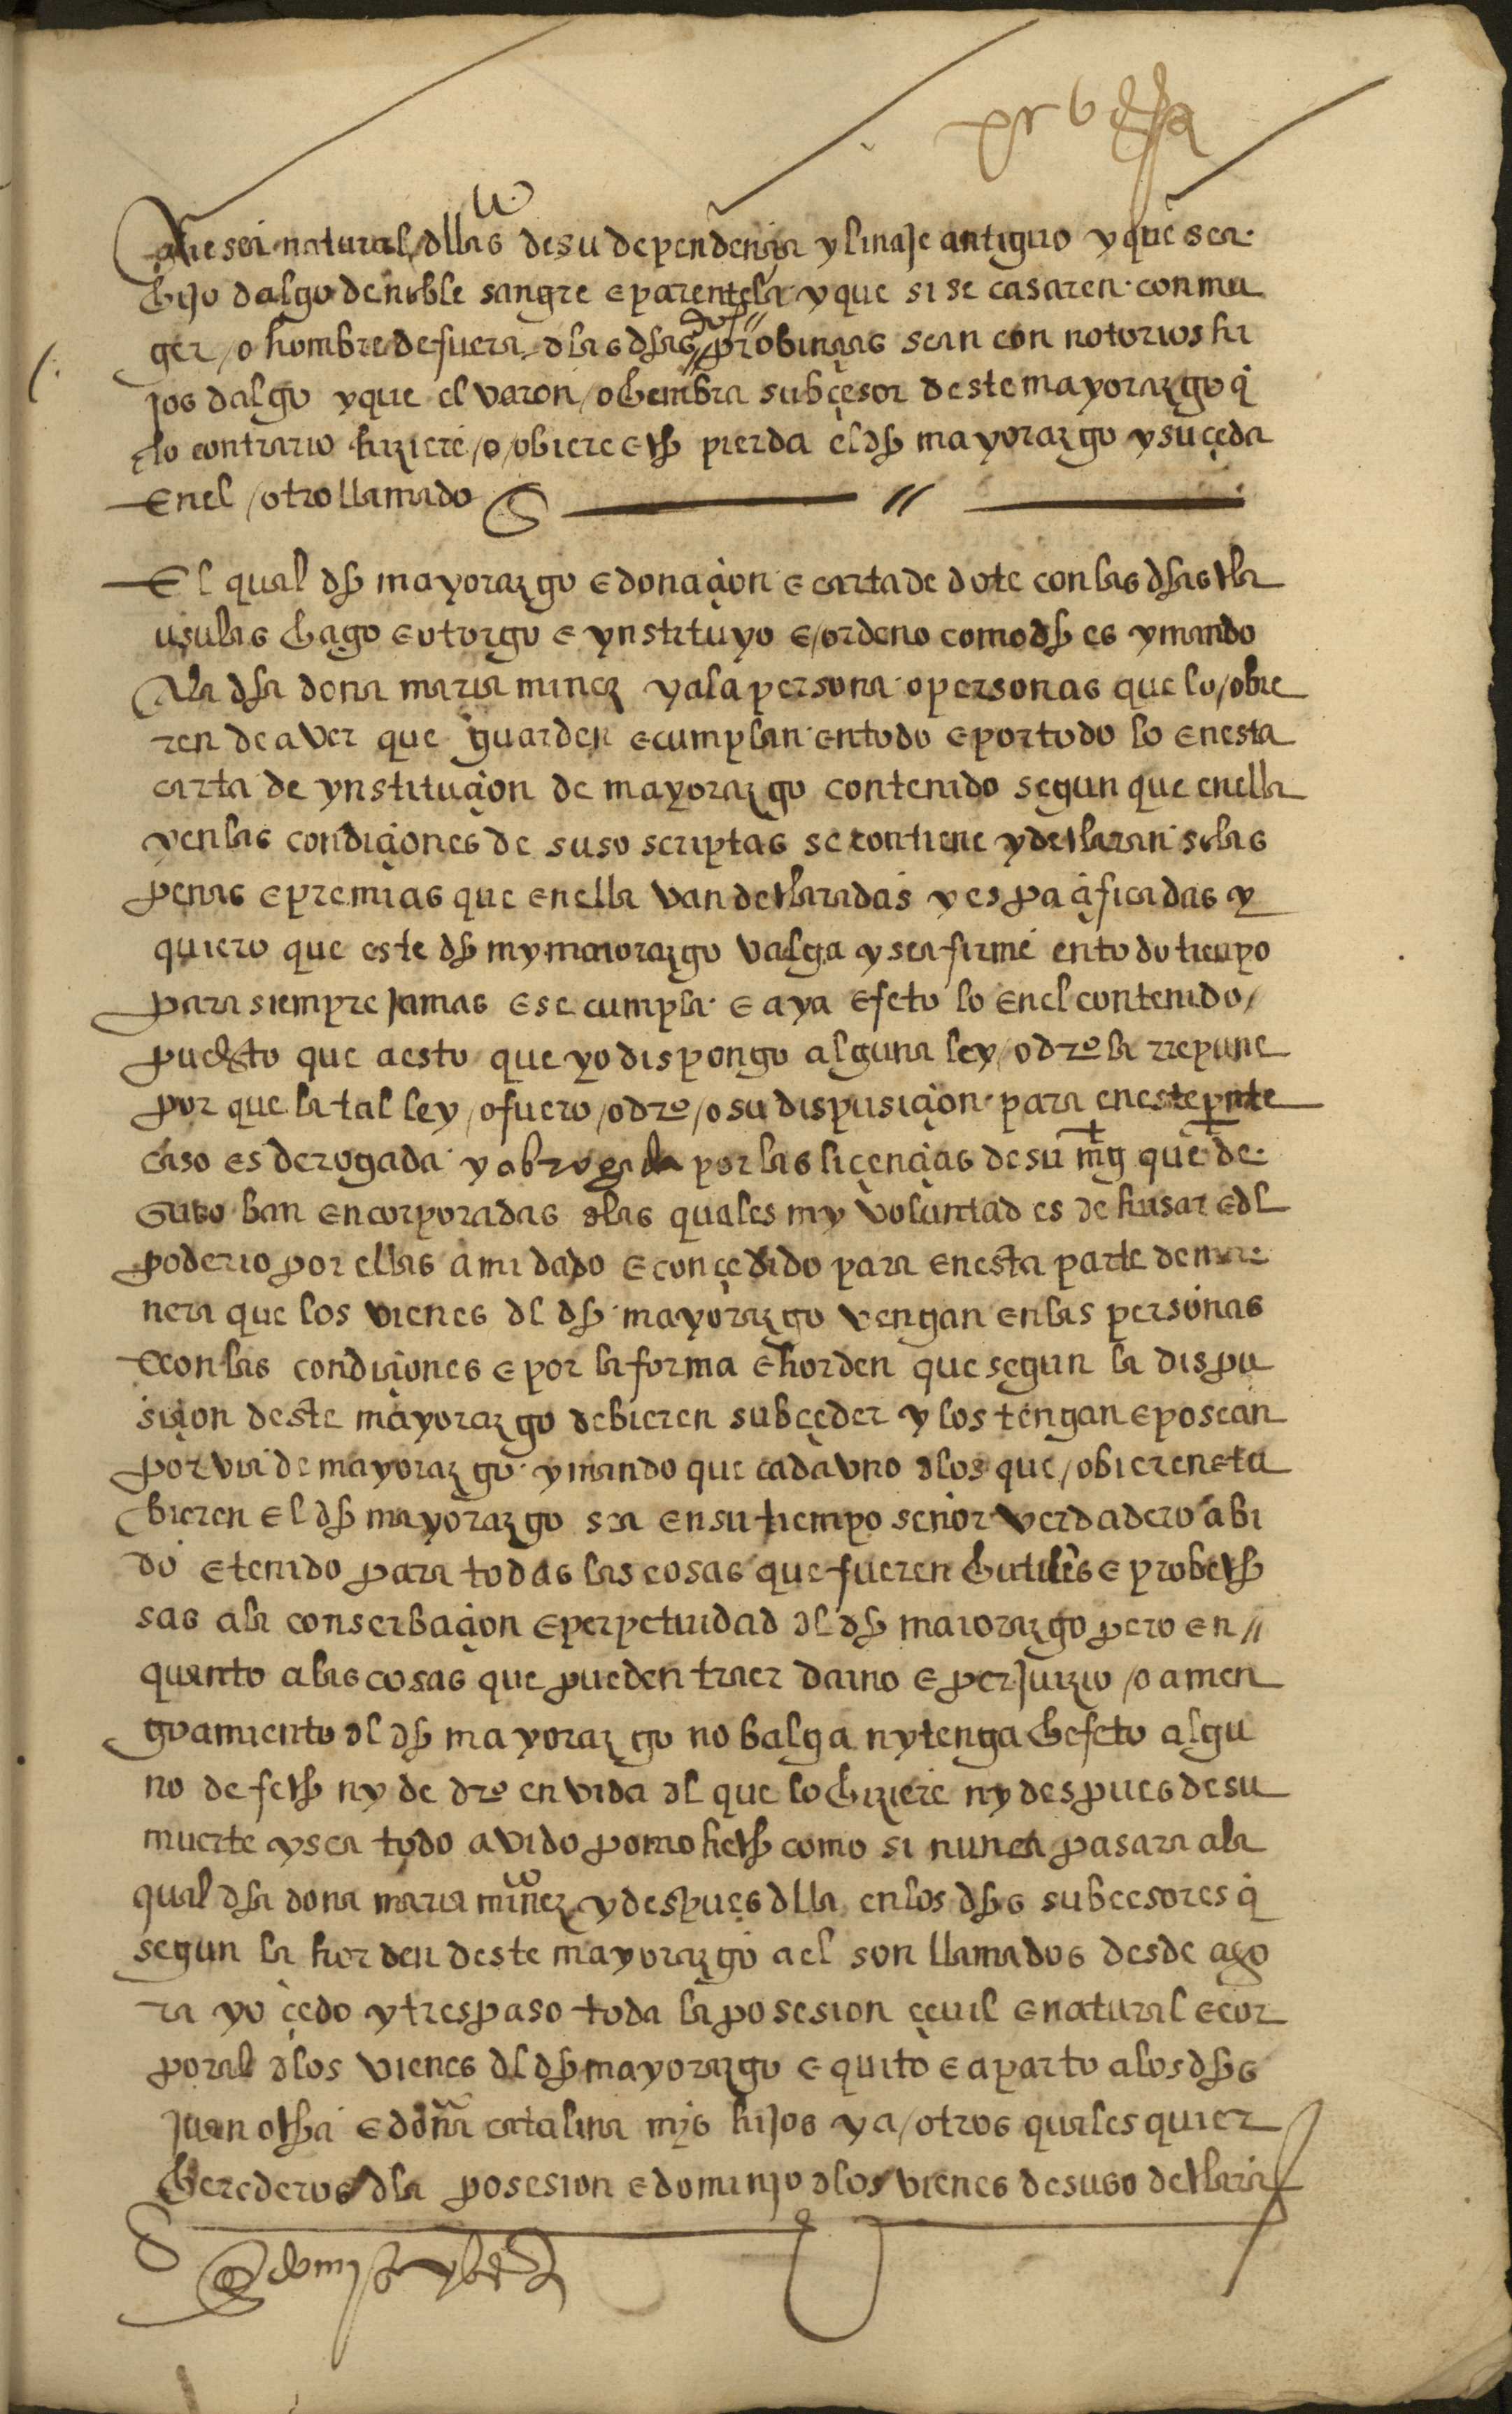 que sea natural dllas de su dependençia y linaje antiguo y que sea
hijo dalgo de noble sangre e parentela y que si se casaren con mu
ger / o hombre de fuera dlas dhas dos probinçias sean con notorios hi
jos dalgo y que el varon / o hembra subçesor deste mayorazgo q̃
lo contrario hiziere / o / obiere echo pierda el dho mayorazgo y suçeda
en el / otro llamado
El qual dho mayorazgo e donaçion e carta de dote con las dhas cla
usulas hago e otorgo e ynstituyo e / ordeno como dho es y mando
ala dha dona maria minez y a la persona o personas que lo / obie
ren de aver que guarden e cumplan en todo e por todo lo en esta
carta de ynstituçion de mayorazgo contenido segun que en ella
y en las condiçiones de suso scriptas se contiene y declaran so las
penas e premias que en ella van declaradas y espaçificadas y
quiero que este dho my maiorazgo valga y sea firme en todo tienpo
para siempre jamas e se cumpla e aya efeto lo en el contenido /
puesto que a esto que yo dispongo alguna ley / o dro la rrepune
por que la tal ley / o fuero / o dro / o su dispusiçion para en este pnte
caso es derogada y abrogada por las liçençias de su mg que de
suso ban encorporadas dlas quales my voluntad es de husar e dl
poderio por ellas a mi dado e conçedido para en esta parte de ma
nera que los vienes dl dho mayorazgo vengan en las personas
e con las condiçiones e por la forma e horden que segun la dispu
siçion deste mayorazgo debieren subçeder y los tengan e posean
por via de mayorazgo y mando que cada vno dlos que / obieren e ta
bieren el dho mayorazgo sea en su tiempo señor verdadero abi
do e tenido para todas las cosas que fueren hutiles e probecho
sas ala conserbaçion e perpetuidad dl dho maiorazgo pero en //
quanto alas cosas que pueden traer daino e perjuizio / o amen
guamiento dl dho mayorazgo no balga ny tenga hefeto algu
no de fecho ny de dro en vida dl que lo hiziere ny despues de su
muerte y sea todo avido por no hecho como si nunca pasara ala
qual dha dona maria minez y despues dlla en los dhos subcesores q̃
segun la horden deste mayorazgo a el son llamados desde ago
ra yo çedo y trespaso toda la posesion çevil e natural e cor
poral dlos vienes dl dho mayorazgo e quito e aparto alos dhos
juan ochoa e doña catalina mys hijos y a / otros quales quier
herederos dla posesion e dominjo dlos vienes de suso declara